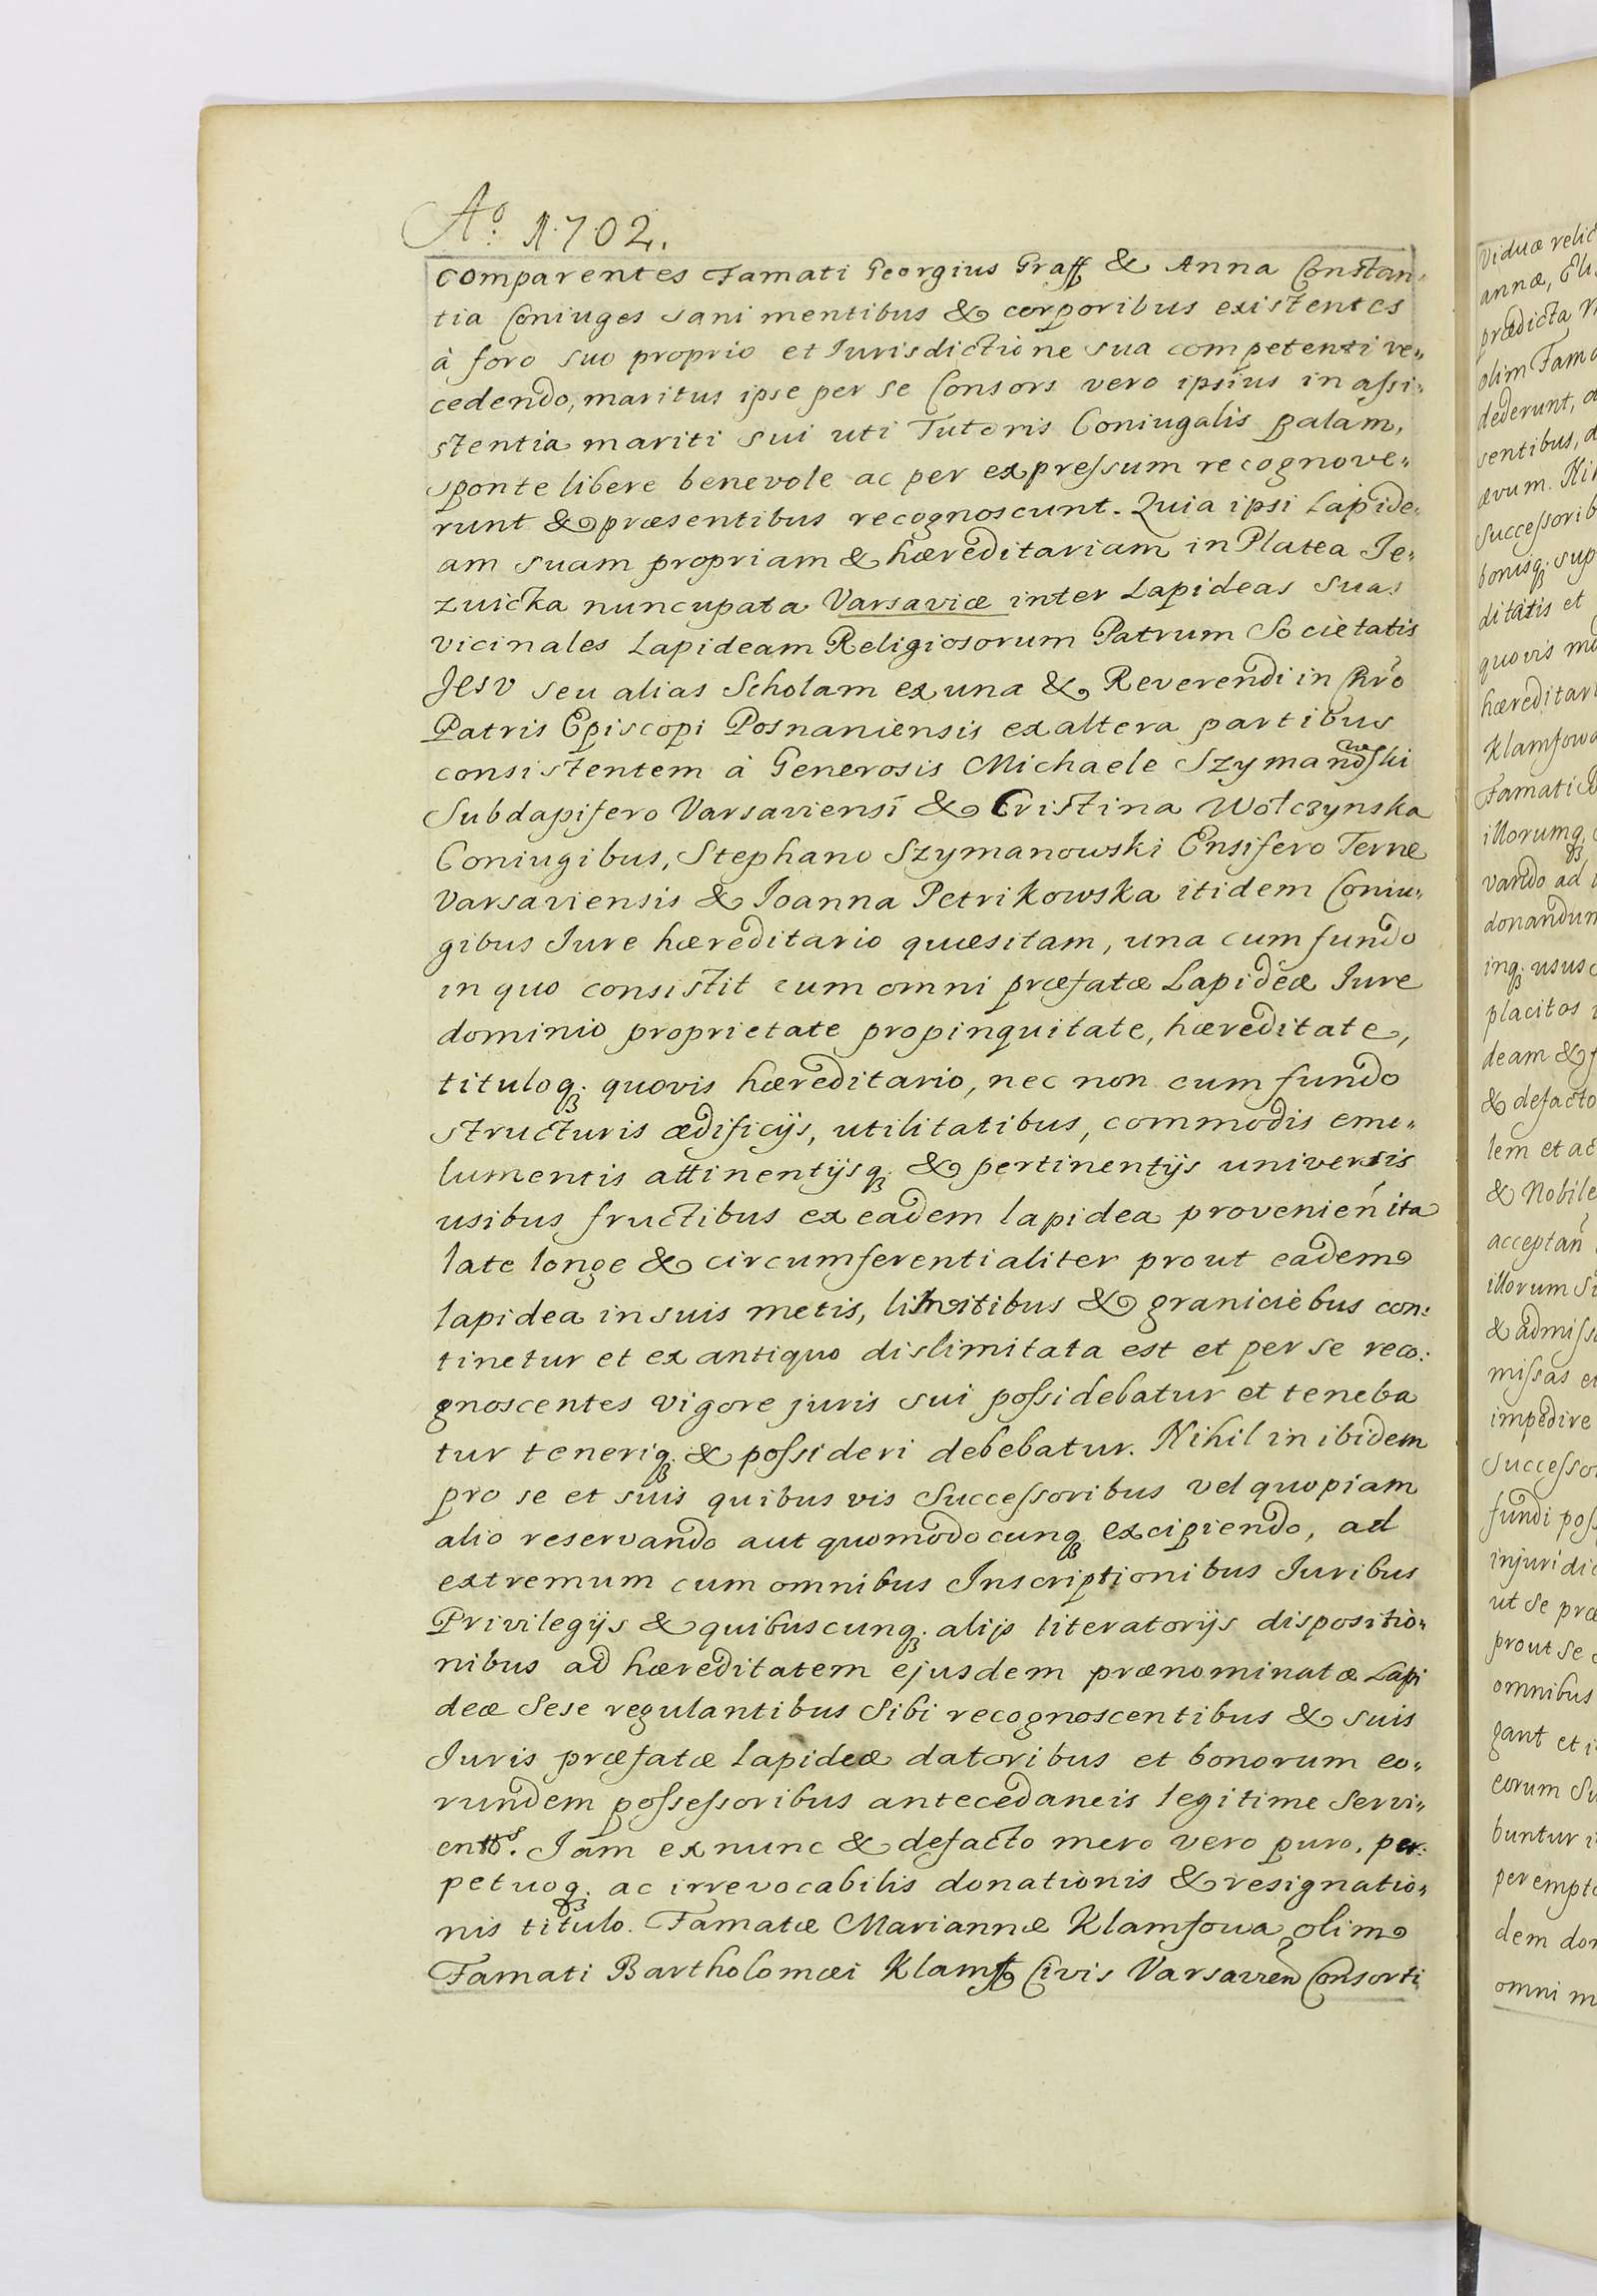 Aº. 1702.
comparentes Famati Georgius Graff & Anna Constan„
tia Coniuges sani mentibus & corporibus existentes
à foro suo proprio et Iurisdictione sua competenti re„
cedendo, maritus ipse per se Consors vero ipsius in assi„
stentia mariti sui uti Tutoris Coniugalis palam,
sponte libere benevole ac per expressum recognove„
runt & præsentibus recognoscunt. Quia ipsi Lapide„
am suam propriam & hæreditariam in Platea Je„
zuicka nuncupata Varsaviæ inter Lapideas suas
vicinales Lapideam Religiosorum Patrum Societatis
Jesv seu alias Scholam ex una & Reverendi in Chrõ
Patris Episcopi Posnaniensis ex altera partibus
consistentem à Generosis Michaele Szymanowski
Subdapifero Varsaviensi & Cristina Wołczynska
Coniugibus, Stephano Szymanowski Ensifero Terræ
Varsaviensis & Joanna Petrikowska itidem Coniu„
gibus Iure hæreditario quæsitam, una cum fundo
in quo consistit cum omni præfatæ Lapideæ Iure
dominio proprietate propinquitate, hæreditate,
tituloq; quovis hæreditario, nec non cum fundo
structuris ædificijs, utilitatibus, commodis emo„
lumentis attinentijsq; & pertinentijs universis
usibus fructibus ex eadem lapidea provenień ita
late longe & circumferentialiter prout eadem
lapidea in suis metis, limitibus & graniciebus con:
tinetur et ex antiquo dislimitata est et per se reco:
gnoscentes vigore juris sui possidebatur et teneba
tur teneriq; & possideri debebatur. Nihil in ibidem
pro se et suis quibus vis Successoribus vel quopiam
alio reservando aut quomodocunq; excipiendo, ad
extremum cum omnibus Inscriptionibus Iuribus
Privilegijs & quibuscunq; alijs literatorijs dispositio„
nibus ad hæreditatem ejusdem prænominatæ Lapi
deæ Sese regulantibus Sibi recognoscentibus & suis
Iuris præfatæ lapideæ datoribus et bonorum eo„
rundem possessoribus antecedaneis legitime Servi„
entes. Iam ex nunc & defacto mero vero puro, per:
petuoq; ac irrevocabilis donationis & resignatio„
nis titulo. Famatæ Mariannæ Klamsowa olim
Famati Bartholomæi Klams Civis Varsavień Consorti
viduæ relic
annæ, Eli
prædicta
olim Fama
dederunt, a
sentibus, d
ævum.
Successorib
bonisq; sup
ditatis et
quovis mo
hæreditari
Klamsowa
Famati
illorumq;
vando ad
donandum
inq; usus
placitos
deam &
& defacto
lem et ac
& Nobile
acceptań
illorum
& admiss
missas et
impedire
Successor
fundi pos
injuridic
ut se præ
prout se
omnibus
gant et
eorum Su
buntur
perempto
dem don
omni m